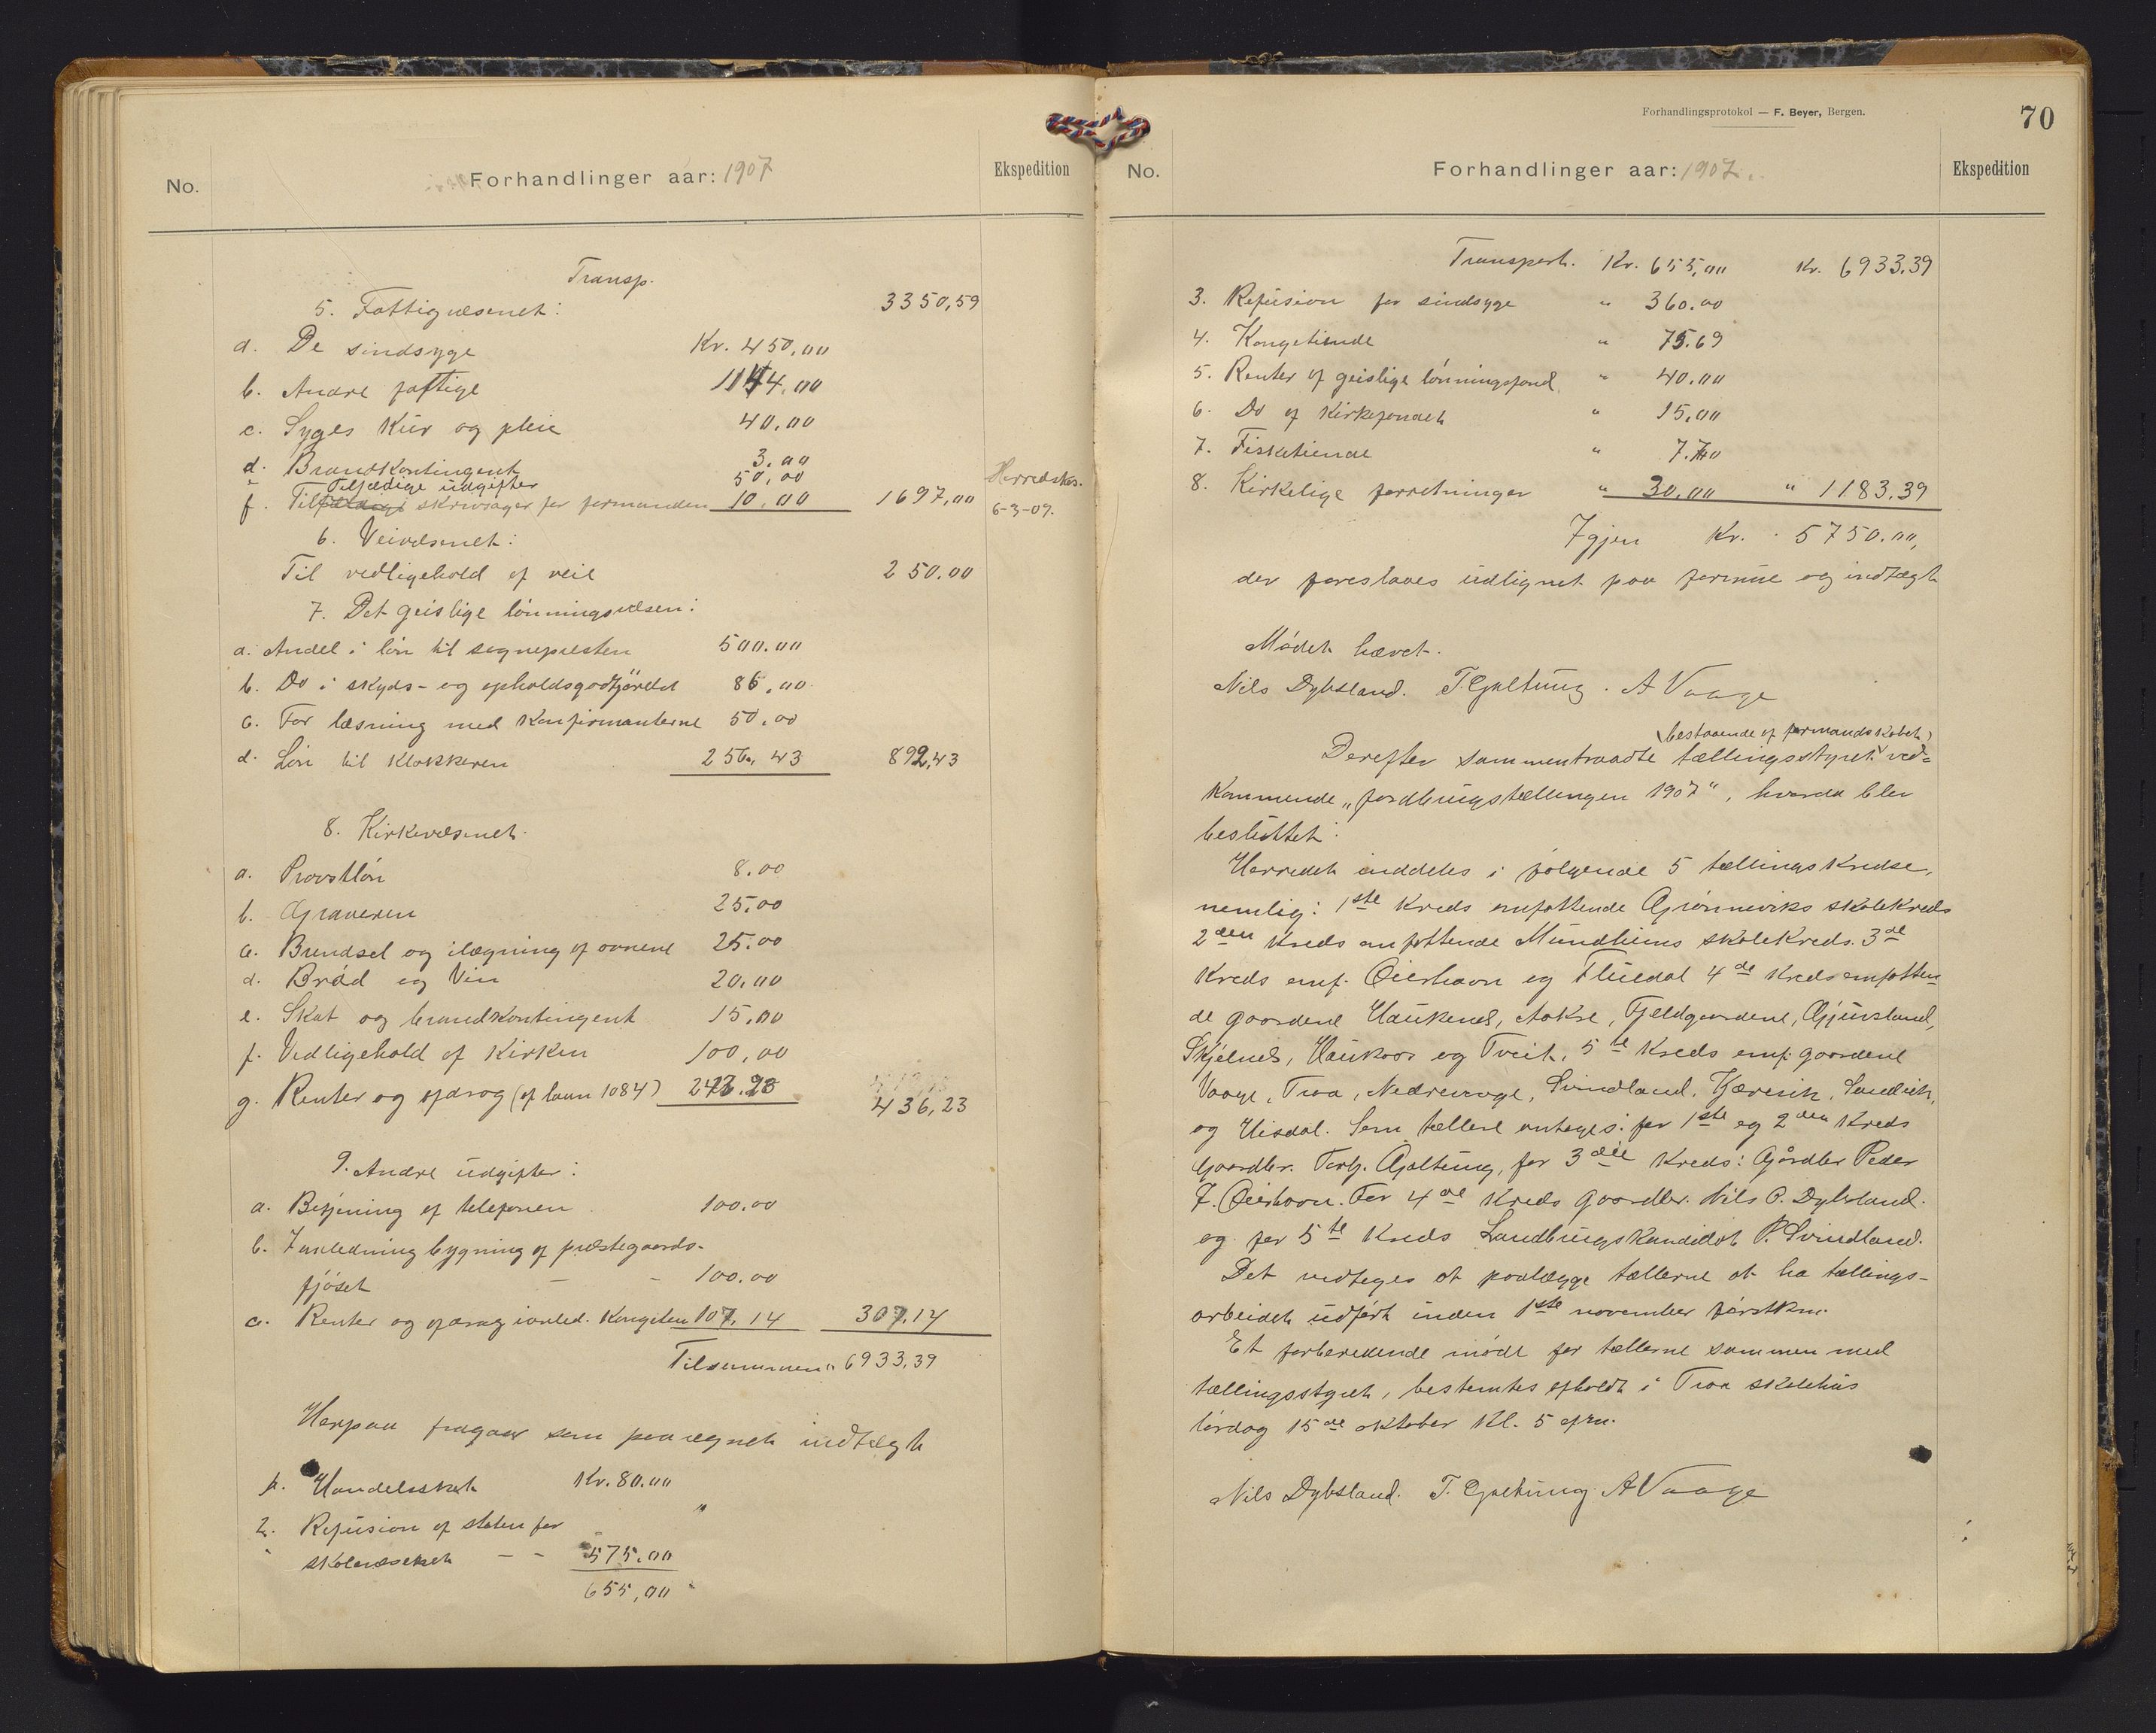 No.
Forhandlinger aar: 1907
Ekspedition
Transp.
5. Fattigvæsenet: 3350,59
a. De sindsyge Kr. 450,00
b. Andre fattige 1144,00
c. Syges Kur og pleie 40,00
d. Brandkontingent 3,00
e Tilfældige udgifter 50,00
f. Til skrivsager for formanden 10,00 1697,00
Herredskas.
6-3-09.
6. Veivæsenet:
Til vedligehold af veie 250.00
7. Det geislige lønningsvæsen:
a. Andel i løn til sognepresten 500.00
b. Do i skyds- og opholdsgodtgjørelse 86,00
c. For læsning med Konfirmanterne 50.00
d. Løn til Klokkeren 256,43 892,43
8. Kirkevæsenet.
a. Provstløn 8.00
b. Graveren 25.00
c. Brændsel og ilægning af ovnene 25.00
d. Brød og Vin 20.00
e. Skat og brandkontingent 15.00
f. Vedligehold af Kirken 100,00
g. Renter og afdrag (af laan 1084) 243.23
436,23
9. Andre udgifter:
a. Betjening af telefonen 100.00
b. I anledning bygning af præstegaards-
fjøset - - 100.00
c. Renter og afdrag ianled. Kongetien 107.14 307.14
Tilsammen " 6933.39
Herpaa fragaar som paaregnet indtægt
1. Handelsskat Kr. 80.00
2. Refusion af staten for "
skolevæsenet - - 575.00
655,00
Forhandlingsprotokol — F. Beyer, Bergen.
70
No.
Forhandlinger aar: 1907.
Ekspedition
Transport. Kr. 655,00 Kr. 6933.39
3. Refusion for sindsyge " 360.00
4. Kongetiende " 75.69
5. Renter af geislige lønningsfond " 40.00
6. Do af Kirkefondet " 15,00
7. Fisketiende " 7.70
8. Kirkelige forretninger " 30.00 " 1183,39
Igjen Kr. 5750.00,
der foreslaaes udlignet paa formue og indtægt
Mødet hævet.
Nils Dybsland. T. Galtung. A Vaage
(bestaaende af formandskabet)
Derefter sammentraadte tællingsstyret ved-
kommende "jordbrugstællingen 1907", hvorda blev
besluttet:
Herredet inddeles i følgende 5 tællingskredse,
nemlig: 1ste Kreds omfattende Gjønneviks skolekreds
2den Kreds omfattende Mundheims skolekreds. 3de
Kreds omf. Øierhavn og Fluedal 4de Kreds omfatten
de gaardene Haukenes, Aakre, Fjeldgaardene, Gjuvsland,
Skjelnes, Haukaas og Tveit, 5te Kreds omf. gaardene
Vaage, Traa, Nedrevaage, Svindland, Kjærevik, Sandvik,
og Uisdal. Som tællere antages: for 1ste og 2den Kreds
Gaardbr. Torb. Galtung, for 3die Kreds: Gårdbr Peder
J. Øierhavn. For 4de Kreds gaardbr. Nils O. Dybsland.
og for 5te Kreds Landbrugskandidat P. Svindland.
Det vedtages at paalægge tællerne at ha tællings-
arbeidet udført inden 1ste november førstkm.
Et forberedende møde for tællerne sammen med
tællingsstyret, bestemtes afholdt i Traa skolehus
lørdag 15de oktober Kl. 5 efm.
Nils Dybsland. T. Galtung. A Vaage